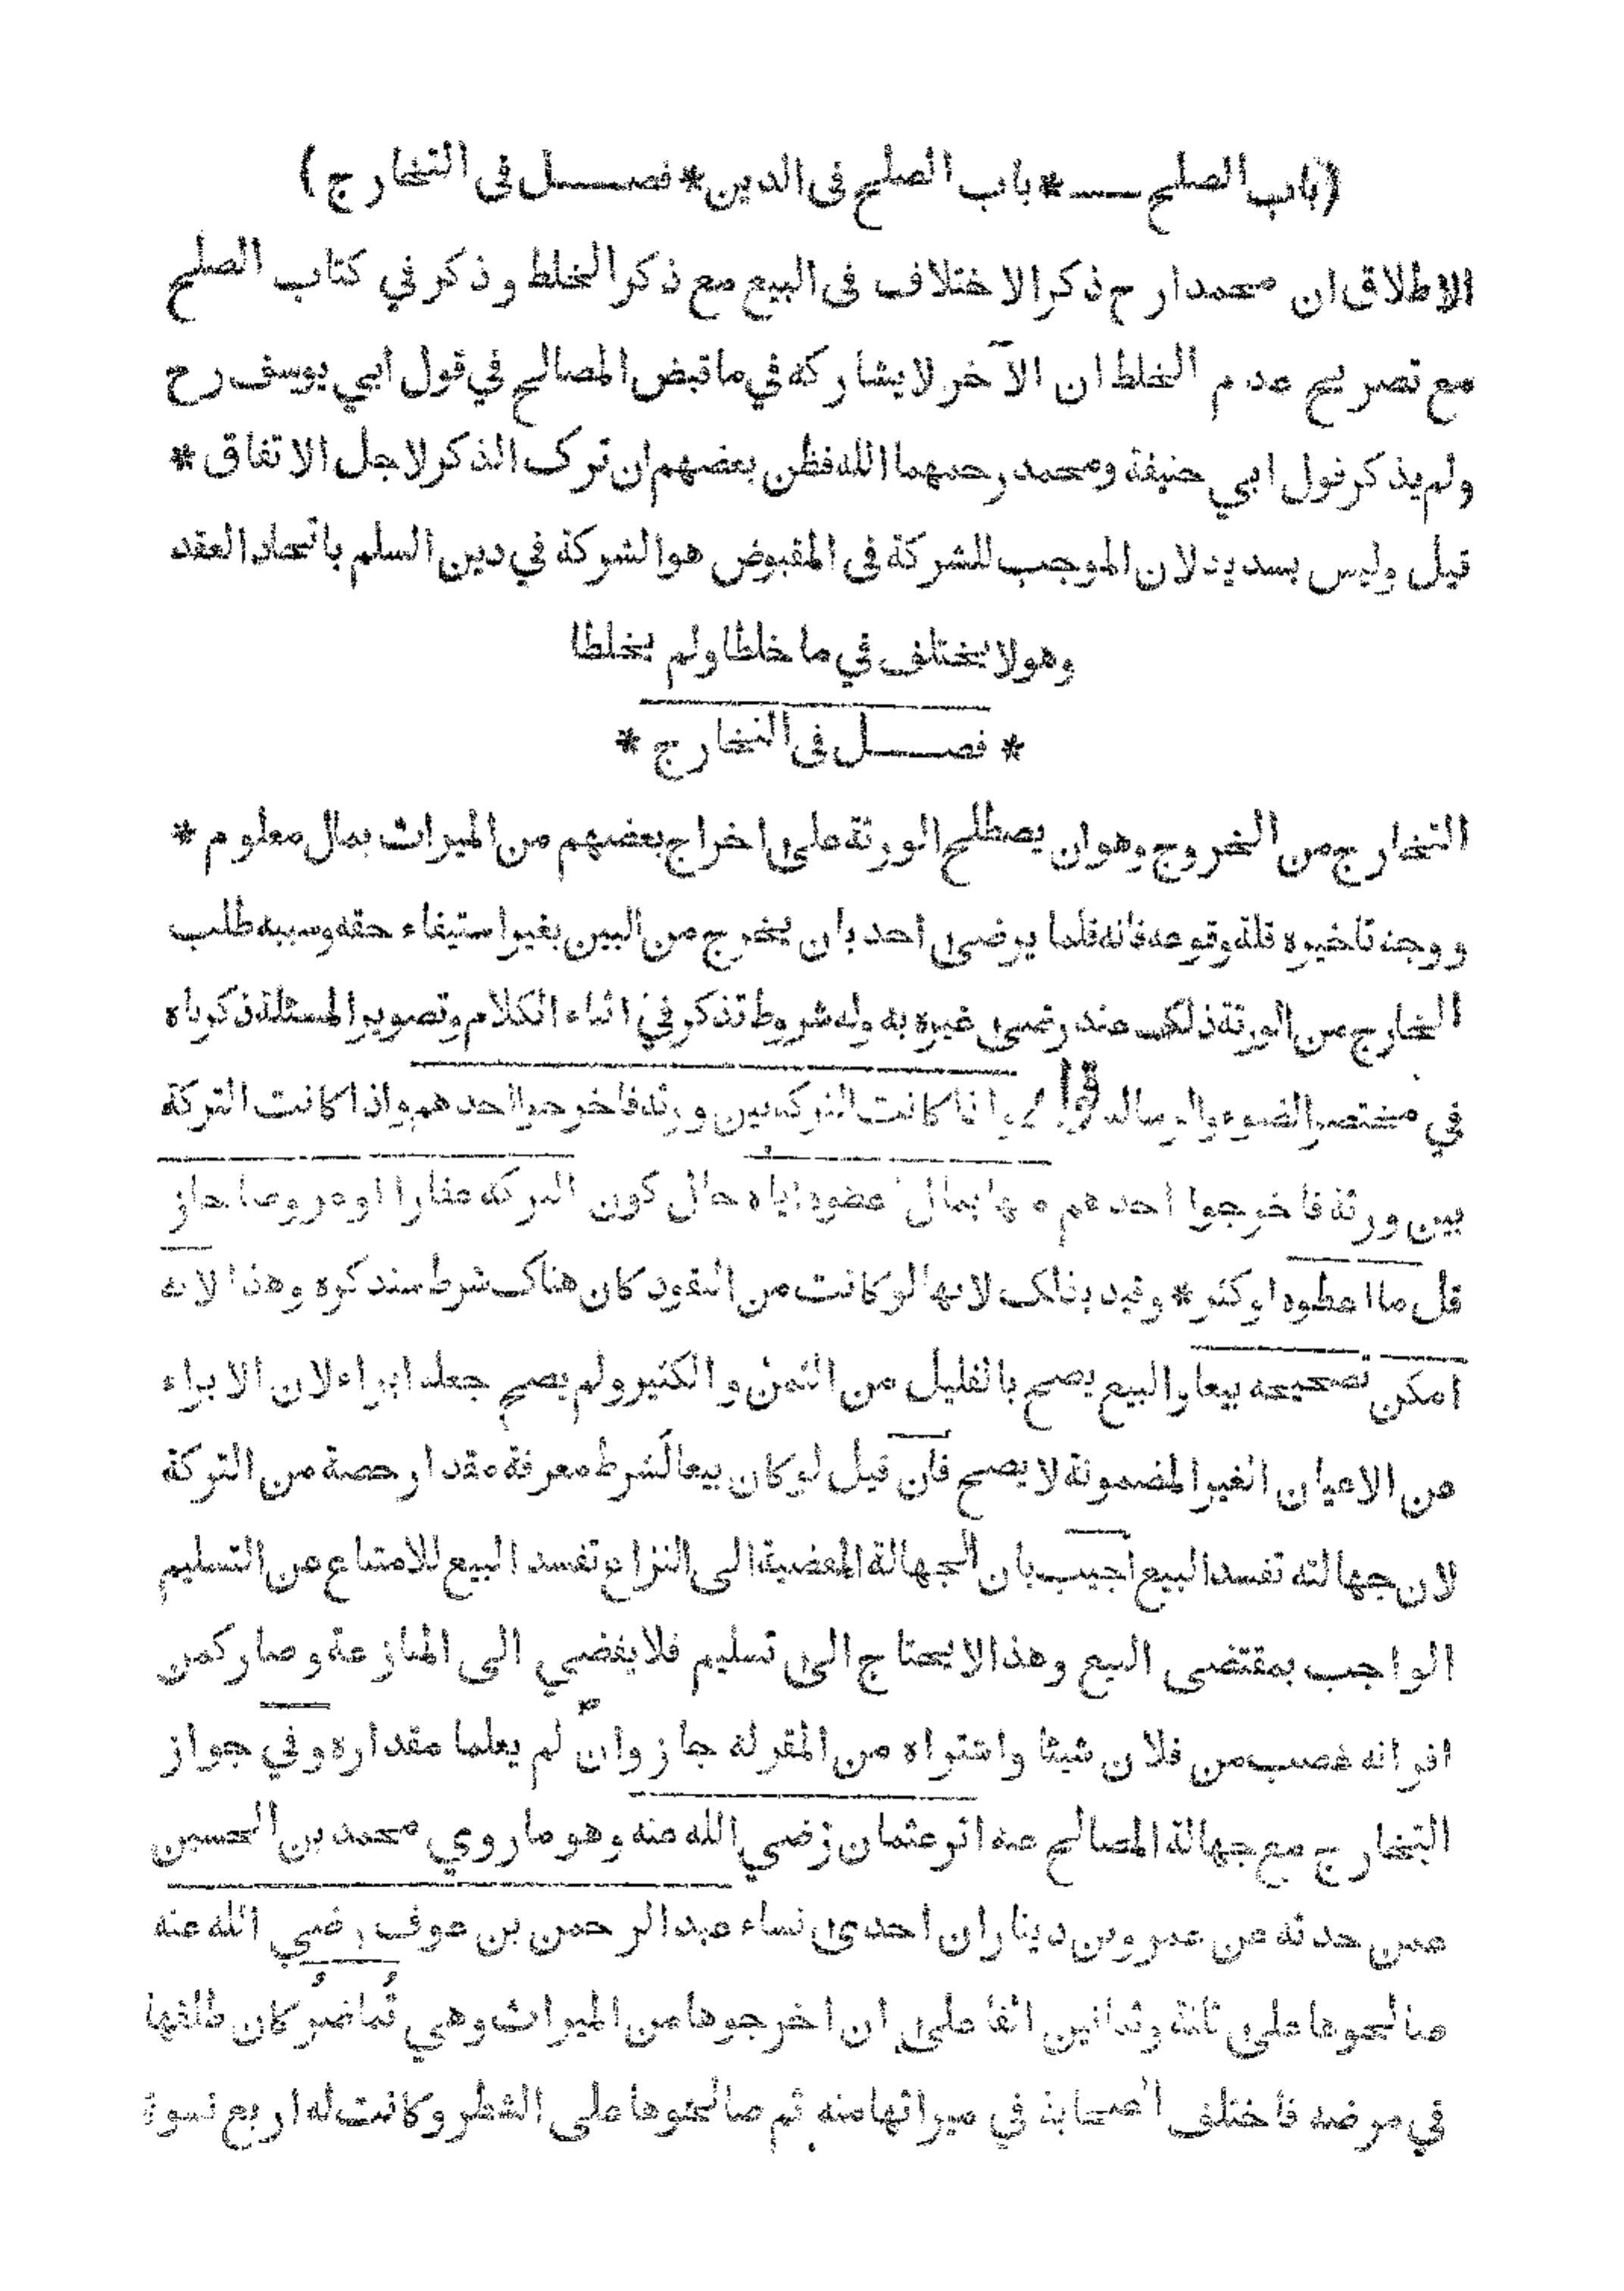 (باب الصلح ــــ * باب الصلح فى الدين * فصــــل فى التخارج)
الاطلاق ان محمدا رح ذكر الاختلاف فى البيع مع ذكر الخلط وذكر في كتاب الصلح
مع تصريح عدم الخلط ان الآخر لا يشاركه في ما قبض المصالح في قول ابي يوسف رح
ولم يذكر قول ابي حنيفة ومحمد رحمهما الله فظن بعضهم ان ترك الذكر لاجل الاتفاق *
قيل وليس بسديد لان الموجب للشركة فى المقبوض هو الشركة في دين السلم باتحاد العقد
وهو لا يختلف في ما خلطا ولم يخلطا
* فصــــل فى التخارج *
التخارج من الخروج وهو ان يصطلح الورثة على اخراج بعضهم من الميراث بمال معلوم *
ووجه تاخيره قلة وقوعه فانه قلما يرضى احد بان يخرج من البين بغير استيفاء حقه وسببه طلب
الخارج من الورثة ذلك عند رضى غيره به وله شروط تذكر في اثناء الكلام وتصوير المسئلة ذكرناه
في مختصر الضوء والرسالة قال واذا كانت التركة بين ورثة فاخرجوا احدهم واذا كانت التركة
بين ورثة فاخرجوا احدهم منها بمال اعطوه اياه حال كون التركة عقارا او عروضا جاز
قل ما اعطوه او كثر * وقيد بذلك لانها لو كانت من النقود كان هناك شرط سنذكره وهذا لانه
امكن تصحيحه بيعا والبيع يصح بالقليل من الثمن والكثير ولم يصح جعله ابراء لان الابراء
من الاعيان الغير المضمونة لا يصح فان قيل لو كان بيعا لشرط معرفة مقدار حصة من التركة
لان جهالته تفسد البيع اجيب بان الجهالة المفضية الى النزاع تفسد البيع للامتناع عن التسليم
الواجب بمقتضى البيع وهذا لا يحتاج الى تسليم فلا يفضي الى المنازعة وصار كمن
اقر انه غصب من فلان شيئا واشتراه من المقر له جاز وان لم يعلما مقداره وفي جواز
التخارج مع جهالة المصالح عنه اثر عثمان رضي الله عنه وهو ما روي محمد بن الحسين
عمن حدثه عن عمرو بن دينار ان احدى نساء عبد الرحمن بن عوف رضي الله عنه
صالحوها على ثلثة وثمانين الفا على ان اخرجوها من الميراث وهي تُماضرُ كان طلقها
في مرضه فاختلف الصحابة في ميراثها منه ثم صالحوها على الشطر وكانت له اربع نسوة